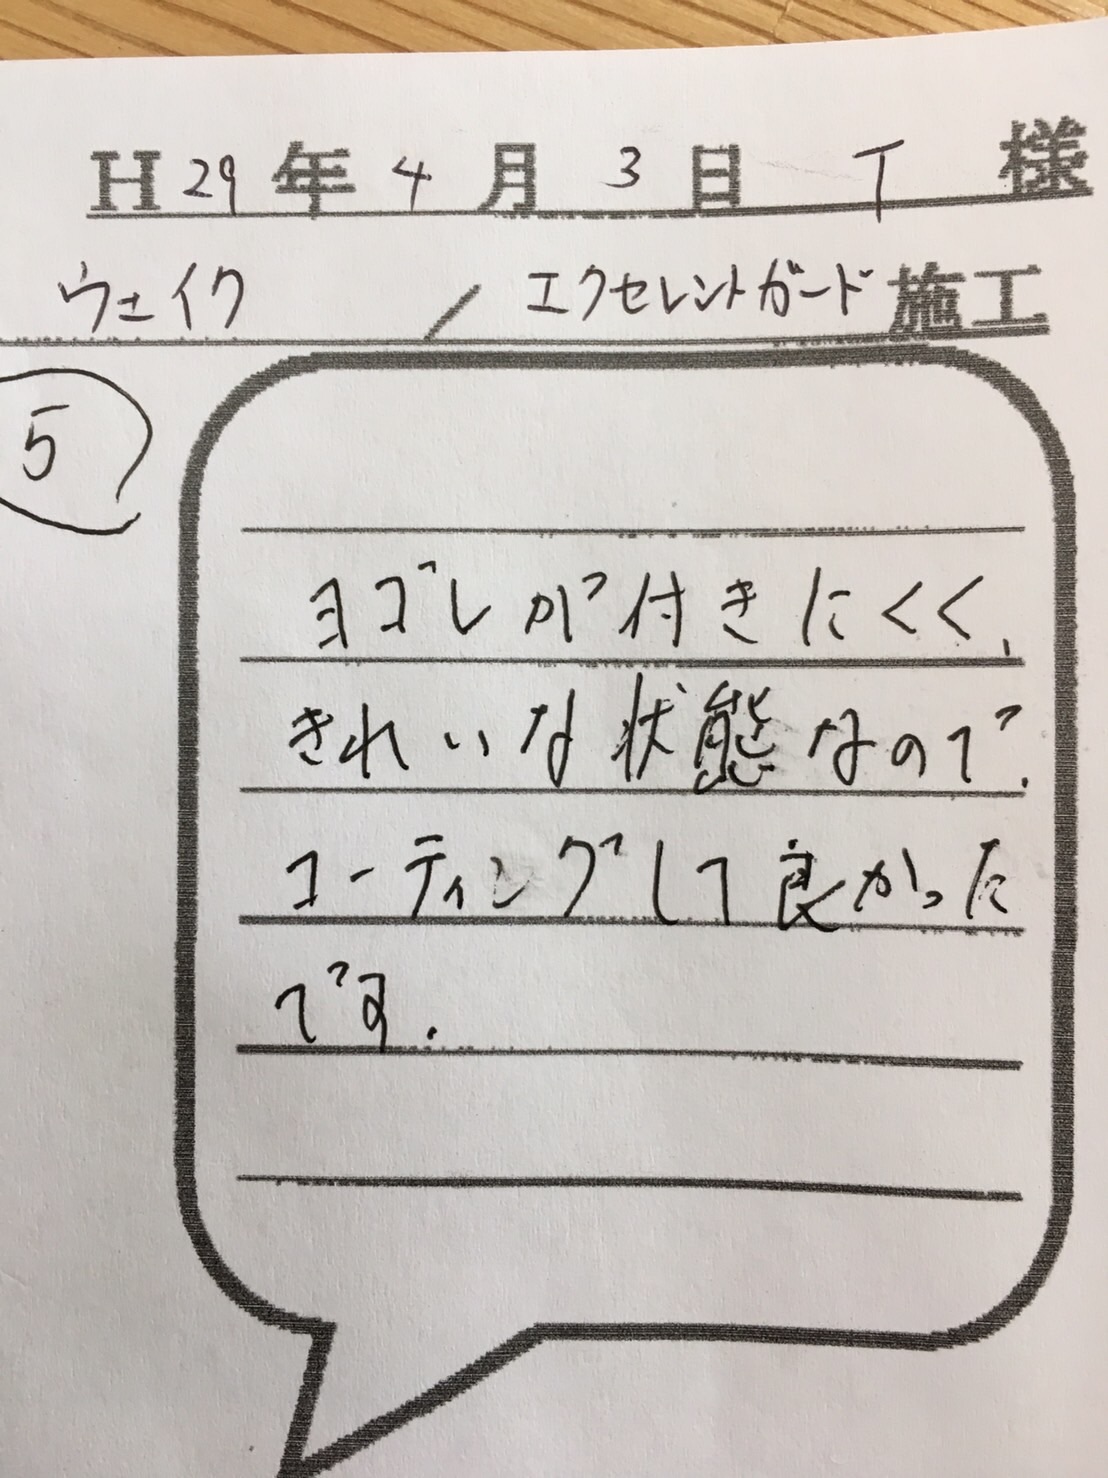 H29年4月3日 T 様
ウェイク / エクセレントガード施工
5
ヨゴレが付きにくく、
きれいな状態なので、
コーティングして良かった
です。